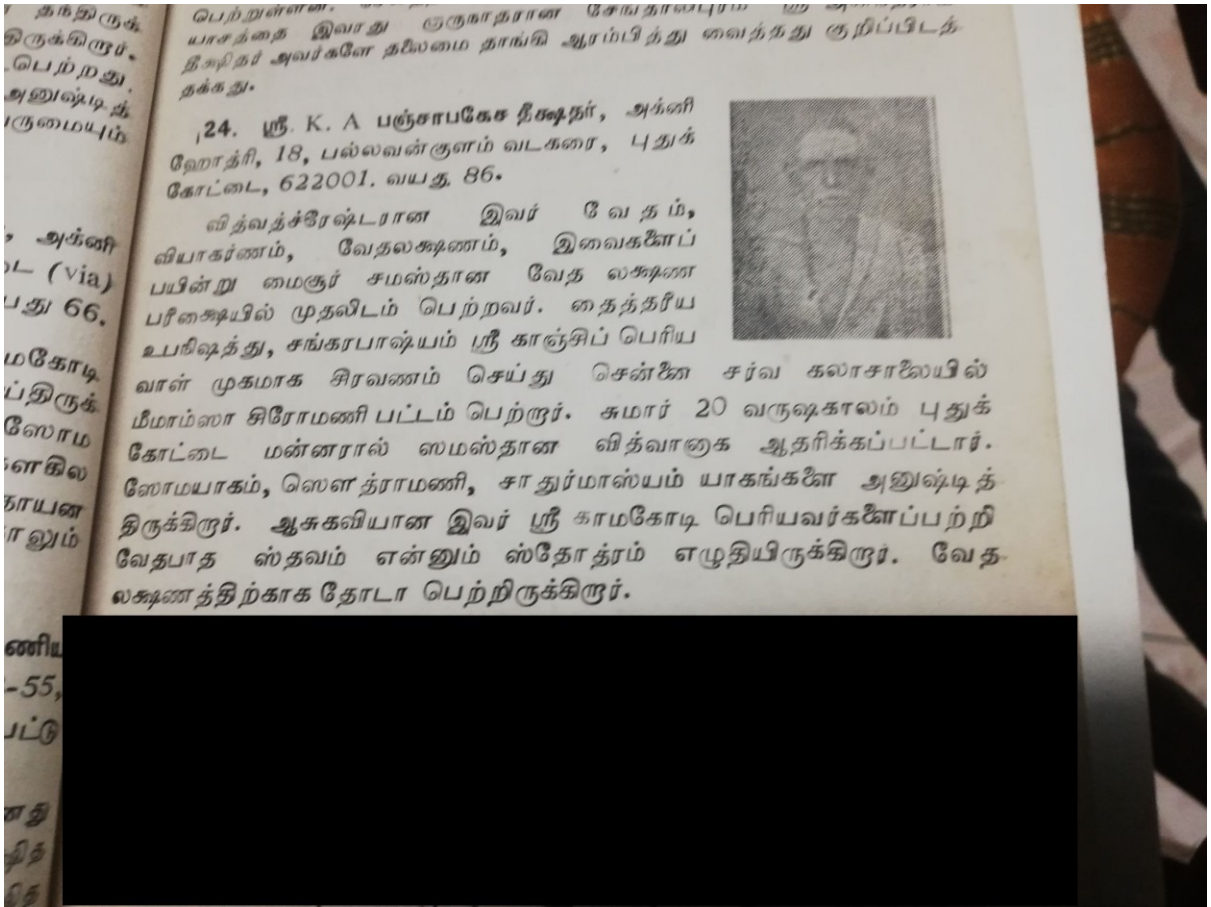 தந்திருக்
திருக்கிறார்.
பெற்றது.
அனுஷ்டித்
ருமையும்
அக்னி
(via)
பது 66.
மகோடி
ய்திருக்
ஸோம
ளகில
தாயன
ாலும்
ணிய
-55,
பட்டு
னது
பெற்றுள்ளன.
யாசத்தை இவரது குருநாதரான சேங்காலிபுரம் ஸ்ரீ
தீக்ஷிதர் அவர்களே தலைமை தாங்கி ஆரம்பித்து வைத்தது குறிப்பிடத்
தக்கது.
24. ஸ்ரீ. K. A பஞ்சாபகேச தீக்ஷதர், அக்னி
ஹோத்ரி, 18, பல்லவன்குளம் வடகரை, புதுக்
கோட்டை, 622001. வயது. 86.
வித்வத்ச்ரேஷ்டரான இவர் வேதம்,
வியாகர்ணம், வேதலக்ஷணம், இவைகளைப்
பயின்று மைசூர் சமஸ்தான வேத லக்ஷண
பரீக்ஷையில் முதலிடம் பெற்றவர். தைத்தரீய
உபநிஷத்து, சங்கரபாஷ்யம் ஸ்ரீ காஞ்சிப் பெரிய
வாள் முகமாக சிரவணம் செய்து சென்னை சர்வ கலாசாலையில்
மீமாம்ஸா சிரோமணி பட்டம் பெற்றார். சுமார் 20 வருஷகாலம் புதுக்
கோட்டை மன்னரால் ஸமஸ்தான வித்வானாக ஆதரிக்கப்பட்டார்.
ஸோமயாகம், ஸௌத்ராமணி, சாதுர்மாஸ்யம் யாகங்களை அனுஷ்டித்
திருக்கிறார். ஆசுகவியான இவர் ஸ்ரீ காமகோடி பெரியவர்களைப்பற்றி
வேதபாத ஸ்தவம் என்னும் ஸ்தோத்ரம் எழுதியிருக்கிறார். வேத
லக்ஷணத்திற்காக தோடா பெற்றிருக்கிறார்.